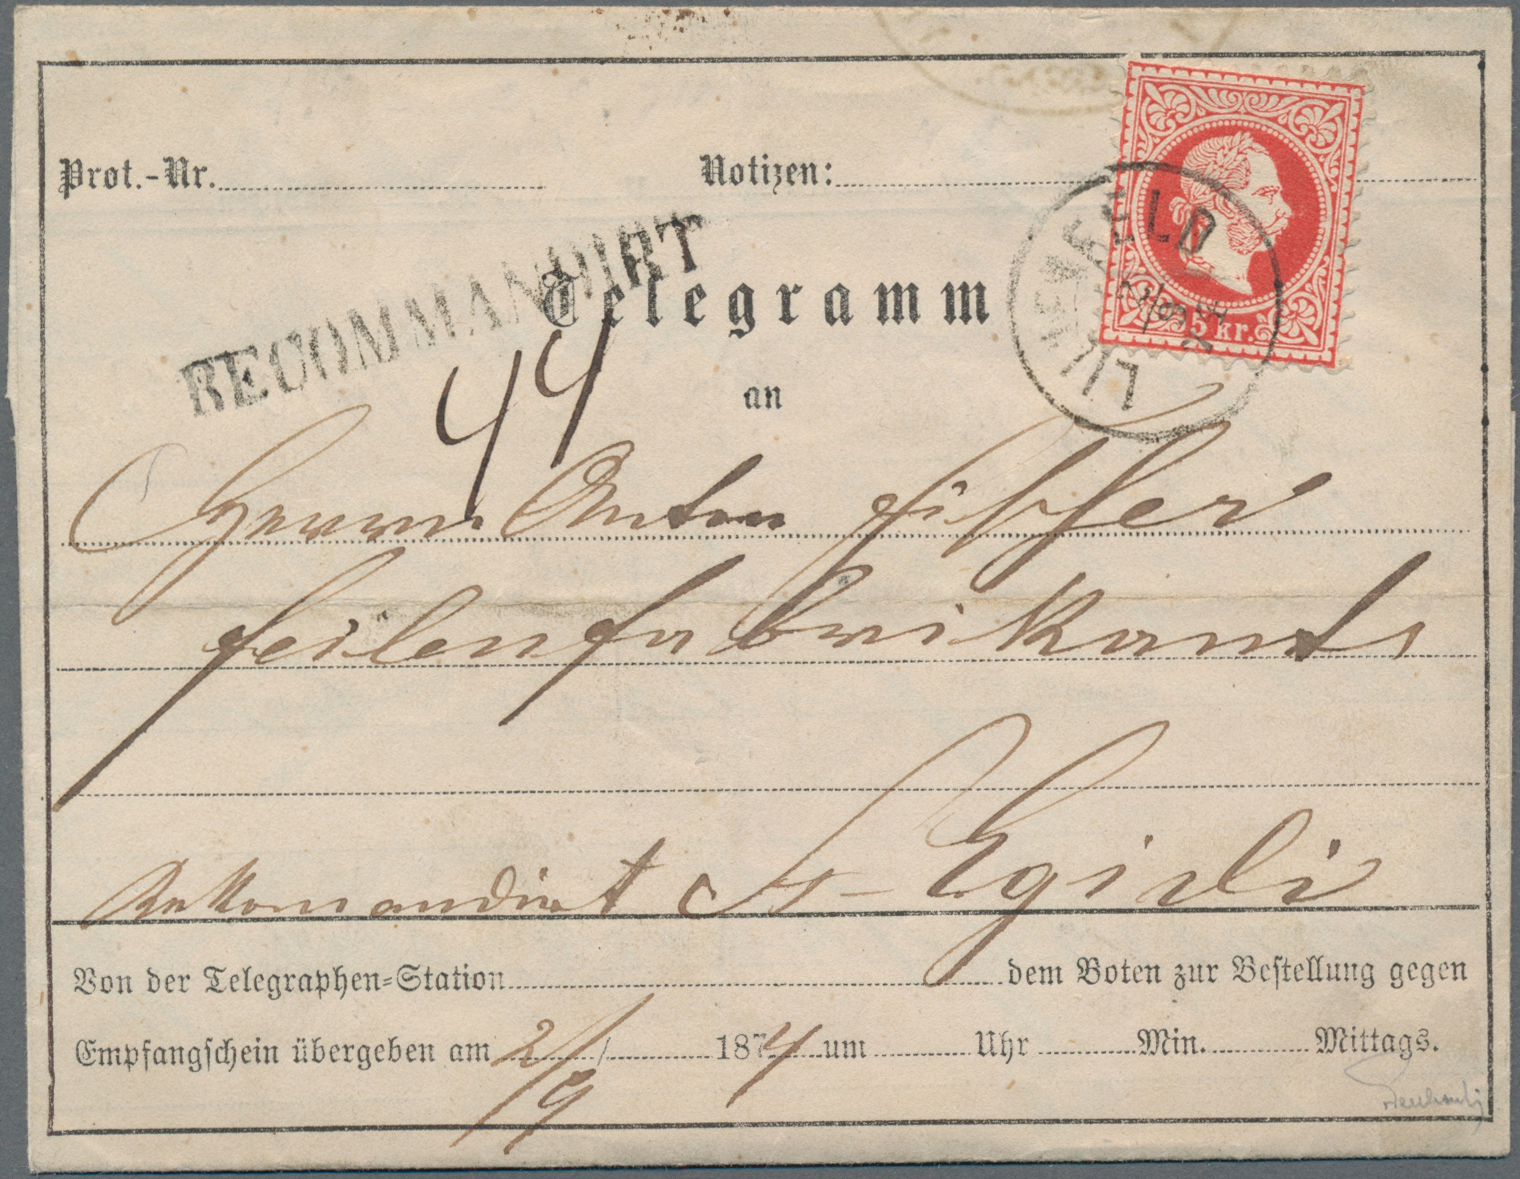 Prot.-Nr.
Notizen:
RECOMMANDIRT
Telegramm
LILIENFELD
2/9
5 kr.
44
an
Herrn Anton
Feilenfabrikants
Rekomandirt St Egidi
Von der Telegraphen=Station dem Boten zur Bestellung gegen
Empfangschein übergeben am 2/9 1874 um Uhr Min. Mittags.